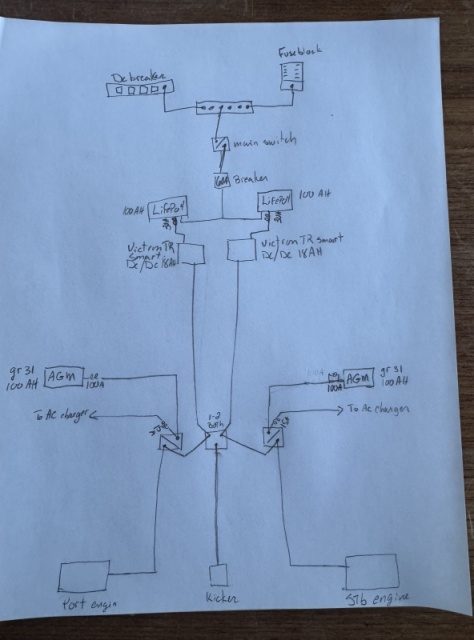 Fuseblock
Dc breaker
main switch
Breaker
100 AH
LifePo4
LifePo4
100 AH
Victron TR
smart
Dc/Dc 18AH
Victron TR smart
Dc/Dc 18AH
gr 31
100 AH
AGM
100A
100A
AGM
gr 31
100 AH
To Ac charger
1-2
Both
To Ac charger
Port engin
Kicker
Stb engine